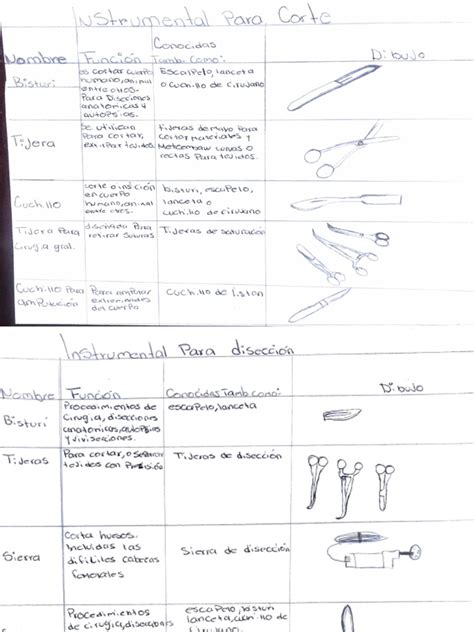 Instrumental Para Corte
Nombre Función Conocidas Tambi Como: Dibujo
Bisturi
es cortar cuerpo
humano, animal
entre otros.
Para Disecciones
anatomicas y
autopsias.
Escalpelo, lanceta
o cuchillo de cirujano
Tijera
Se utilizan
Para cortar,
extirpar tejidos.
tijeras de mayo Para
cortar materiales y
rectas Para tejidos.
Cuchillo
corte o insición
en cuerpo
humano, animal
entre otros.
bisturi, escalpelo,
lanceta o
cuchillo de cirujano
Tijera Para
Cirugia gral.
diseñada Para
retirar suturas
Tijeras de saturación
Cuchillo Para
amputación
Para amputar
extremidades
del cuerpo
Cuchillo de liston
Instrumental Para disección
Nombre Función Conocidas Tamb como: Dibujo
Bisturi
Procedimientos de
cirugia, disecciones
anatomicas, autopsias
y vivisecciones.
escalpelo, lanceta
Tijeras
Para cortar, o separar
tejidos con Presisión
Tijeras de disección
Sierra
Corta huesos.
Incluidas las
dificiles cabezas
femorales
Sierra de disección
Procedimientos
de cirugia, disecciones
escalpelo, bisturi
lanceta, cuchillo de
cirujano.